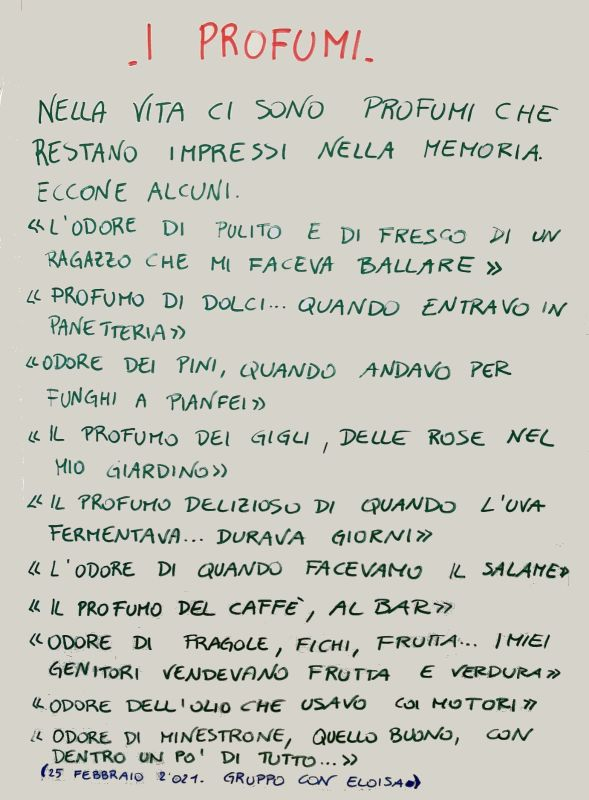 . I PROFUMI.
NELLA VITA CI SONO PROFUMI CHE
RESTANO IMPRESSI NELLA MEMORIA.
ECCONE ALCUNI.
«L'ODORE DI PULITO E DI FRESCO DI UN
RAGAZZO CHE MI FACEVA BALLARE»
« PROFUMO DI DOLCI... QUANDO ENTRAVO IN
PANETTERIA»
«ODORE DEI PINI, QUANDO ANDAVO PER
FUNGHI A PIANFEI»
« IL PROFUMO DEI GIGLI, DELLE ROSE NEL
MIO GIARDINO»
« IL PROFUMO DELIZIOSO DI QUANDO L'UVA
FERMENTAVA... DURAVA GIORNI»
« L'ODORE DI QUANDO FACEVAMO IL SALAME»
« IL PROFUMO DEL CAFFÈ, AL BAR»
«ODORE DI FRAGOLE, FICHI, FRUTTA... I MIEI
GENITORI VENDEVANO FRUTTA E VERDURA»
« ODORE DELL'OLIO CHE USAVO COI MOTORI»
« ODORE DI MINESTRONE, QUELLO BUONO, CON
DENTRO UN PO' DI TUTTO...»
(25 FEBBRAIO 2021. GRUPPO CON ELOISA.)